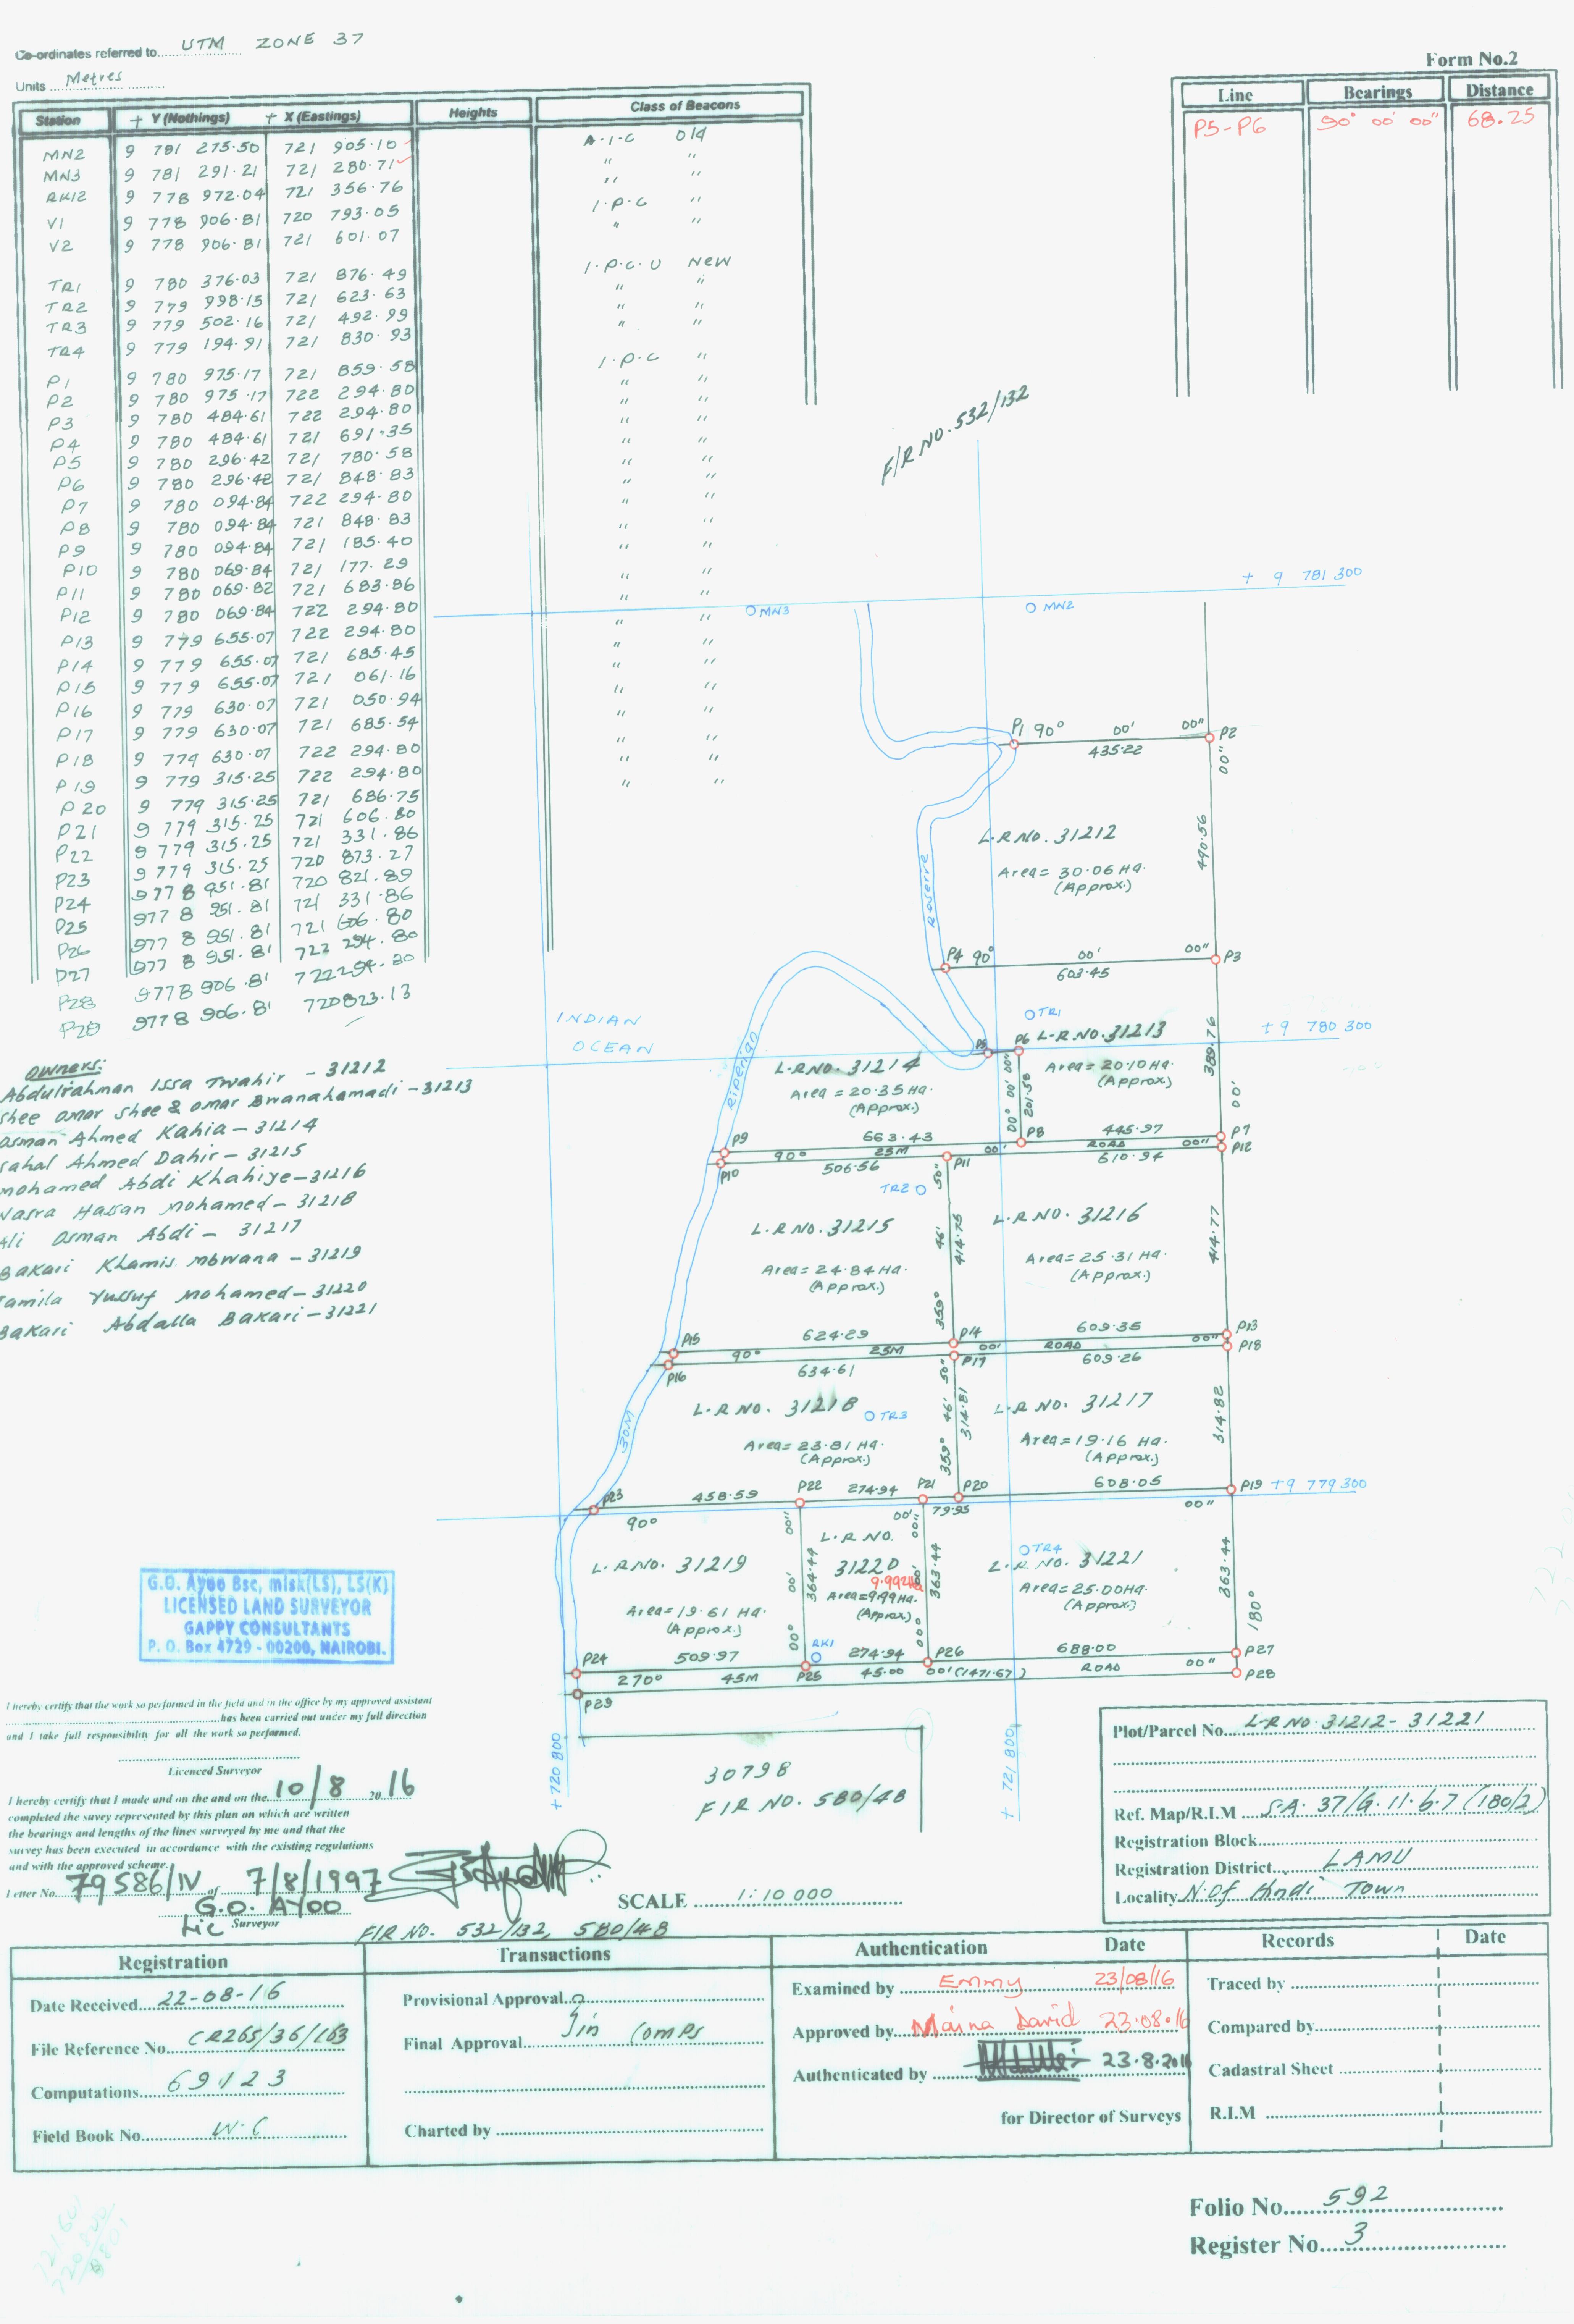 Co-ordinates referred to UTM ZONE 37
Units Metres
Form No.2
Station + Y (Nothings) + X (Eastings) Heights Class of Beacons
MN2 9 781 275.50 721 905.10 A.I.C old
MN3 9 781 291.21 721 280.71 " "
RK12 9 778 972.04 721 356.76 " "
V1 9 778 906.81 720 793.05 I.P.C "
V2 9 778 906.81 721 601.07 " "
TR1 9 780 376.03 721 876.49 I.P.C.U New
TR2 9 779 998.15 721 623.63 " "
TR3 9 779 502.16 721 492.99 " "
TR4 9 779 194.91 721 830.93 " "
P1 9 780 975.17 721 859.58 I.P.C "
P2 9 780 975.17 722 294.80 " "
P3 9 780 484.61 722 294.80 " "
P4 9 780 484.61 721 691.35 " "
P5 9 780 296.42 721 780.58 " "
P6 9 780 296.42 721 848.83 " "
P7 9 780 094.84 722 294.80 " "
P8 9 780 094.84 721 848.83 " "
P9 9 780 094.84 721 185.40 " "
P10 9 780 069.84 721 177.29 " "
P11 9 780 069.82 721 683.86 " "
P12 9 780 069.84 722 294.80 " "
P13 9 779 655.07 722 294.80 " "
P14 9 779 655.07 721 685.45 " "
P15 9 779 655.07 721 061.16 " "
P16 9 779 630.07 721 050.94 " "
P17 9 779 630.07 721 685.54 " "
P18 9 779 630.07 722 294.80 " "
P19 9 779 315.25 722 294.80 " "
P20 9 779 315.25 721 686.75 " "
P21 9 779 315.25 721 606.80
P22 9 779 315.25 721 331.86
P23 9 779 315.25 720 873.27
P24 977 8 951.81 720 821.89
P25 977 8 951.81 721 331.86
P26 977 8 951.81 721 606.80
P27 977 8 951.81 722 294.80
P28 9778 906.81 722294.80
P29 9778 906.81 720823.13
Line Bearings Distance
P5-P6 90° 00' 00" 68.25
F/R NO. 532/132
+ 9 781 300
MN3
MN2
P1 90° 00' 00" P2
435.22
00"
L.R NO. 31212
Area= 30.06 Ha.
(Approx.)
490.56
Reserve
P4 90° 00' 00" P3
603.45
INDIAN
OCEAN
TR1
+ 9 780 300
P5 P6 L.R NO. 31213
Area= 20.10 Ha.
(Approx.)
389.76
00'
L.R NO. 31214
Area= 20.35 Ha.
(Approx.)
00° 00' 00"
201.58
Riperian
P9 663.43 P8 445.97 P7
90° 25M 00' ROAD 00" P12
P10 506.56 P11 610.94
TR2
L.R NO. 31215
Area= 24.84 Ha.
(Approx.)
359° 46' 50"
414.75
L.R NO. 31216
Area= 25.31 Ha.
(Approx.)
414.77
P15 624.29 P14 609.35 P13
90° 25M 00' ROAD 00" P18
P16 634.61 P17 609.26
L.R NO. 31218
TR3
Area= 23.81 Ha.
(Approx.)
30M
359° 46' 50"
314.81
L.R NO. 31217
Area= 19.16 Ha.
(Approx.)
314.82
P23 458.59 P22 274.94 P21 P20 608.05 P19 + 9 779 300
90° 00' 79.95 00"
L.R NO. 31219
Area= 19.61 Ha.
(Approx.)
00° 00' 00"
364.44
L.R NO.
31220
9.992Ha
Area= 9.99 Ha.
(Approx.)
00° 00' 00"
363.44
TR4
L.R NO. 31221
Area= 25.00 Ha.
(Approx.)
363.44
180°
RK1
P24 509.97 P25 274.94 P26 688.00 P27
270° 45M 45.00 00' (1471.67) ROAD 00" P28
P29
+ 720 800
+ 721 800
30798
F/R NO. 580/48
Owners:
Abdulrahman Issa Twahir - 31212
Shee Omar Shee & Omar Bwanahamadi - 31213
Osman Ahmed Kahia - 31214
Sahal Ahmed Dahir - 31215
Mohamed Abdi Khahiye - 31216
Nasra Hassan Mohamed - 31218
Ali Osman Abdi - 31217
Bakari Khamis Mbwana - 31219
Jamila Yussuf Mohamed - 31220
Bakari Abdalla Bakari - 31221
G.O. Ayoo Bsc, misk(LS), LS(K)
LICENSED LAND SURVEYOR
GAPPY CONSULTANTS
P. O. Box 4729 - 00200, NAIROBI.
I hereby certify that the work so performed in the field and in the office by my approved assistant
has been carried out under my full direction
and I take full responsibility for all the work so performed.
Licenced Surveyor
I hereby certify that I made and on the and on the 10/8 2016
completed the suvey represented by this plan on which are written
the bearings and lengths of the lines surveyed by me and that the
survey has been executed in accordance with the existing regulations
and with the approved scheme.
Letter No. 79586/IV of 7/8/1997
G.O. AYOO
Lic Surveyor
F/R NO. 532/132, 580/48
SCALE 1:10 000
Plot/Parcel No. L-R NO. 31212-31221
Ref. Map/R.I.M S.A. 37/G.11.6.7 (180/2)
Registration Block
Registration District LAMU
Locality N.Of Hindi Town
Registration
Date Received 22-08-16
File Reference No. CR265/36/163
Computations 69123
Field Book No. W.C
Transactions
Provisional Approval
Final Approval Jin Comps
Charted by
Authentication Date
Examined by Emmy 23/08/16
Approved by Maina David 23.08.16
Authenticated by 23.8.2016
for Director of Surveys
Records Date
Traced by
Compared by
Cadastral Sheet
R.I.M
Folio No. 592
Register No. 3